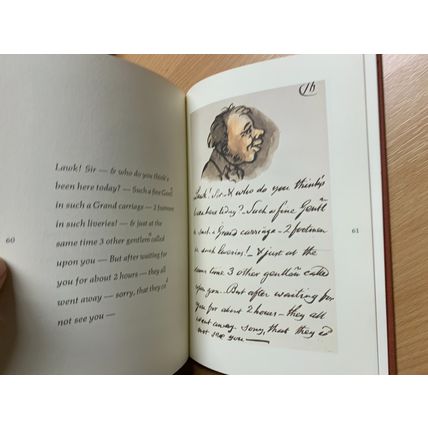 Lawk! Sir — & who do you think's
been here today? — Such a fine Gentn
in such a Grand carriage — 2 footmen
in such liveries! — & just at the
same time 3 other gentlemn called
upon you — But after waiting
for you for about 2 hours — they all
went away — sorry, that they cd
not see you —
60
16
Lawk! Sir & who do you think's
been here today? — Such a fine Gentn
in such a Grand carriage — 2 footmen
in such liveries! — & just at the
same time 3 other gentlemn called
upon you. But after waiting for
you for about 2 hours — they all
went away. sorry, that they cd
not see you —
61